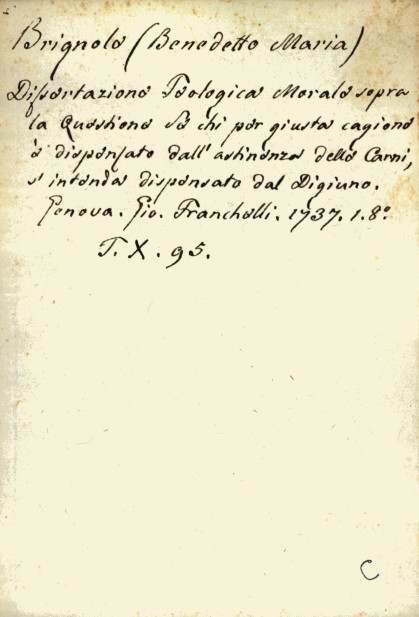 Brignole (Benedetto Maria)
Dissertazione Teologica Morale sopra
la Questione Se chi per giusta cagione
è dispensato dall' astinenza delle Carni,
s' intenda dispensato dal Digiuno.
Genova. Gio. Franchelli. 1737. 1. 8.°
T. X. 95.
C